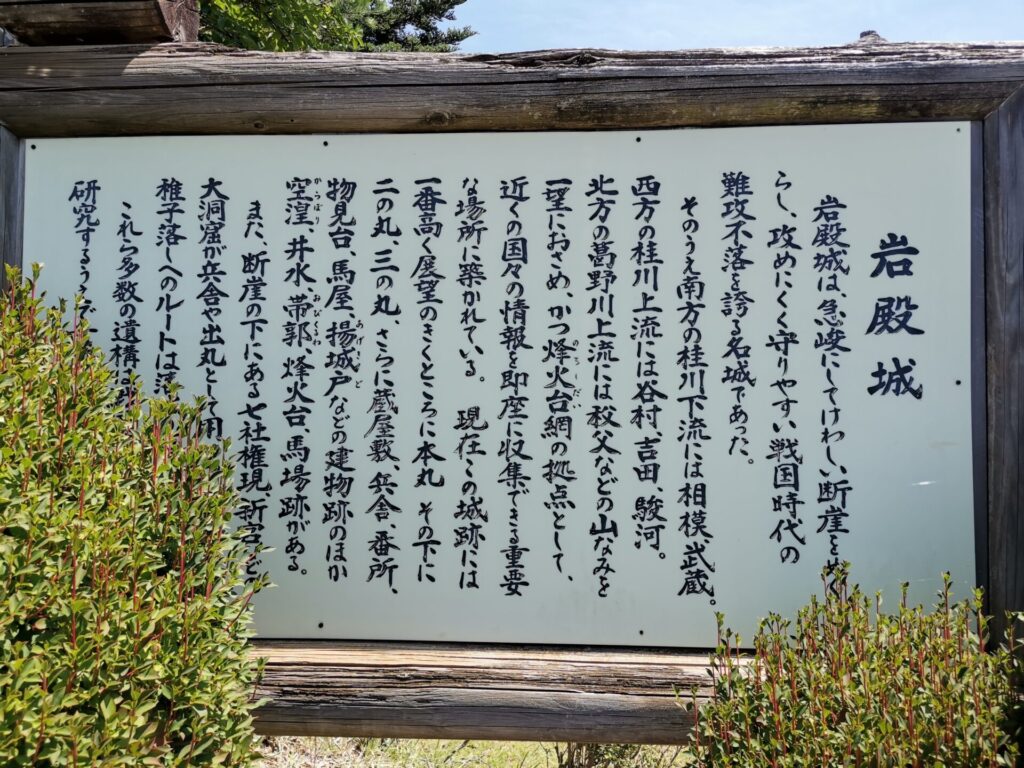 岩殿城
岩殿城は、急峻にしてけわしい断崖を
らし、攻めにくく守りやすい戦国時代の
難攻不落を誇る名城であった。
そのうえ南方の桂川下流には相模、武蔵。
西方の桂川上流には谷村、吉田、駿河。
北方の葛野川上流には秩父などの山なみを
一望におさめ、かつ烽火台網の拠点として、
のろしだい
近くの国々の情報を即座に収集できる重要
な場所に築かれている。 現在この城跡には
一番高く展望のきくところに本丸 その下に
二の丸、三の丸、さらに蔵屋敷、兵舎、番所、
物見台、馬屋、揚城戸などの建物跡のほか
あげきど
空湟、井水、帯郭、烽火台、馬場跡がある。
からぼり
おびくるわ
また、断崖の下にある七社権現、新宮
大洞窟が兵舎や出丸として用
稚子落しへのルートは
これら多数の遺構は
研究するうえで